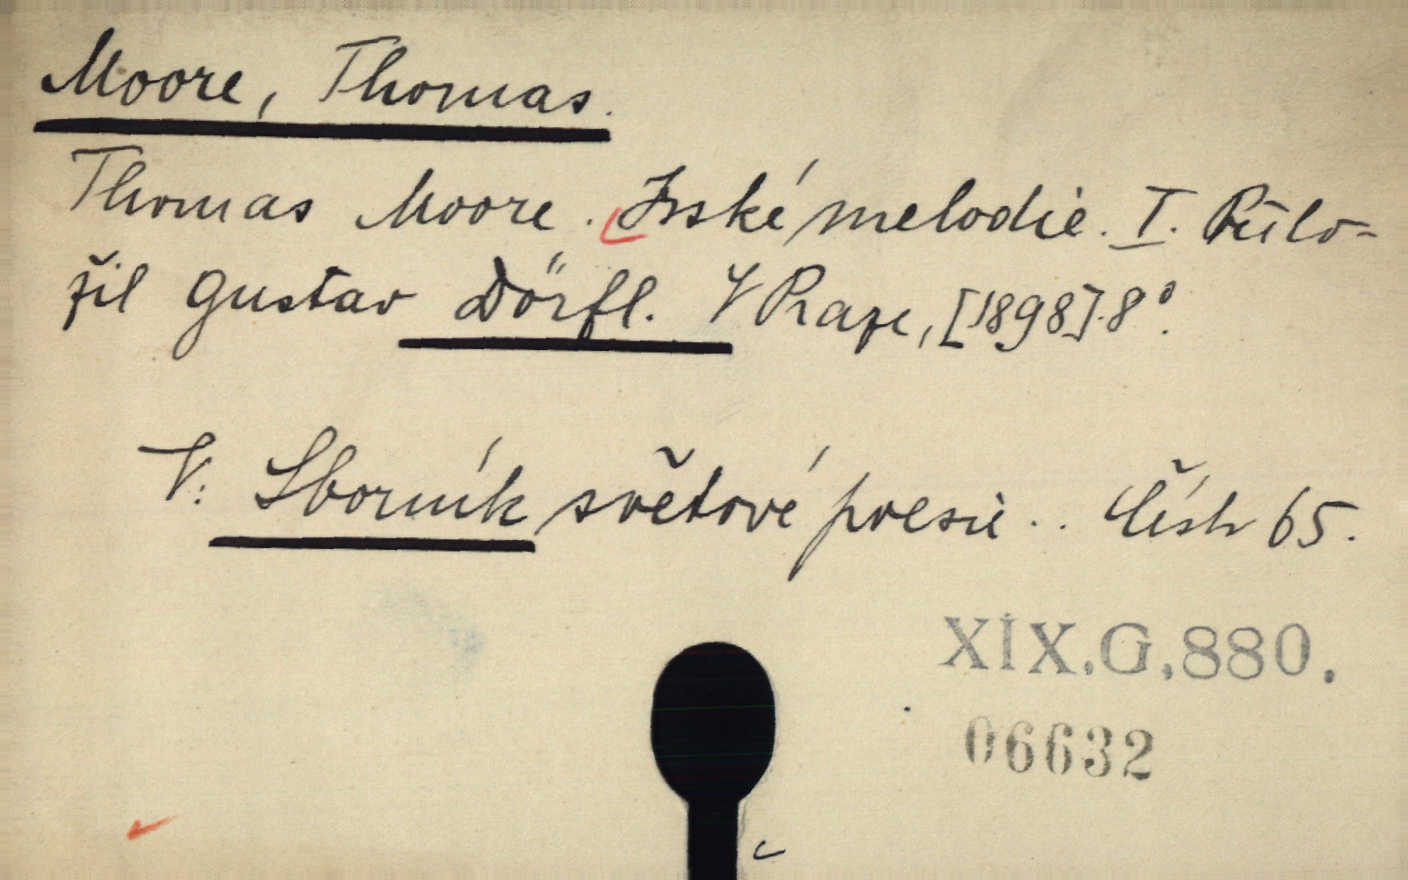 Moore, Thomas.
Thomas Moore. Irské melodie. I. Přelo-
žil Gustav Dörfl. V Praze, [1898]. 8°.
V: Sborník světové poesie.. Číslo 65.
XIX.G.880.
06632